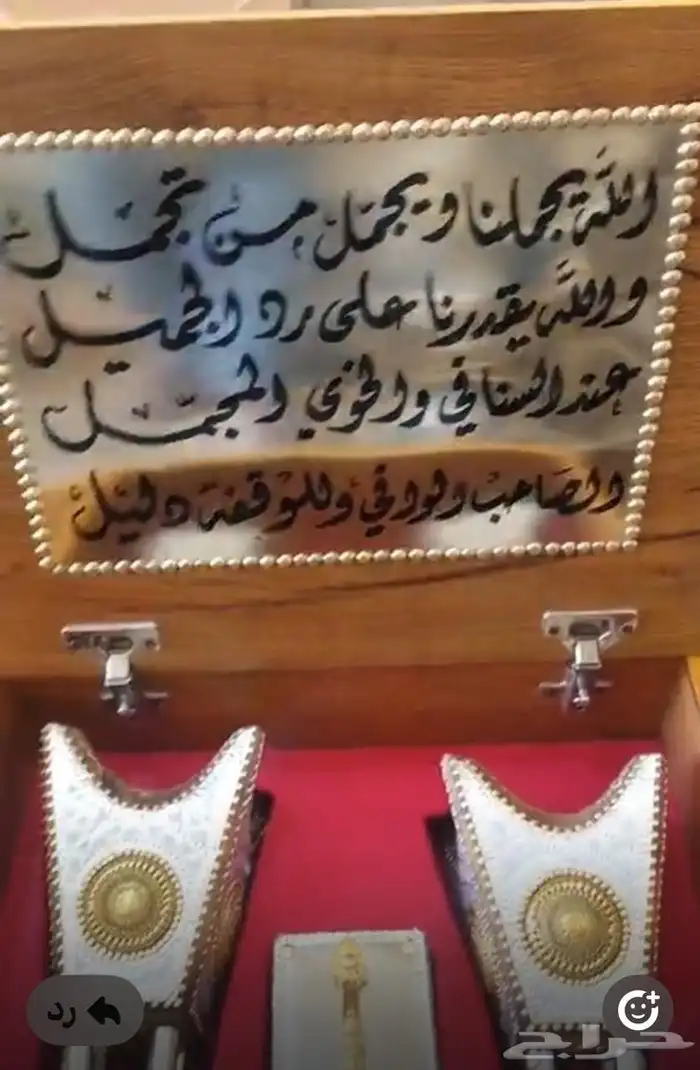 الله يجملنا ويجمل من تجمل
والله يقدرنا على رد الجميل
عند السنافي والخوي المجمل
الصاحب الوافي وللموقفه دليل
رد
حراج